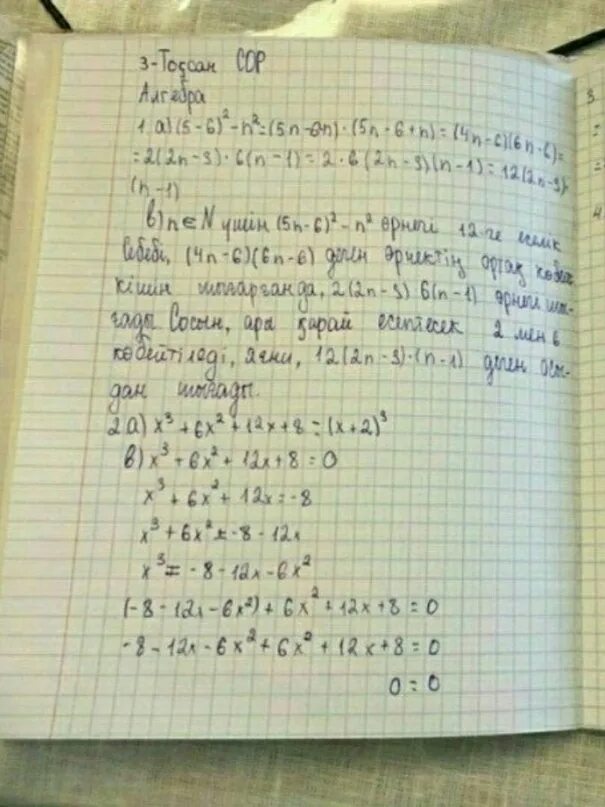 3-Тоқсан СОР
Алгебра
1. а) (5-6)² - n² = (5n-6-n)·(5n-6+n) = (4n-6)(6n-6) =
= 2(2n-3)·6(n-1) = 2·6(2n-3)(n-1) = 12(2n-3)·
(n-1)
в) n ∈ N үшін (5n-6)² - n² өрнегі 12-ге еселік
Себебі, (4n-6)(6n-6) деген өрнектің ортақ көбей
кішін шығарғанда, 2(2n-3) 6(n-1) өрнегі шы-
ғады Сосын, ары қарай есептесек 2 мен 6
көбейтіледі, яғни, 12(2n-3)·(n-1) деген осы-
дан шығады.
2 а) x³ + 6x² + 12x + 8 = (x+2)³
в) x³ + 6x² + 12x + 8 = 0
x³ + 6x² + 12x = -8
x³ + 6x² = -8 - 12x
x³ = -8 - 12x - 6x²
(-8 - 12x - 6x²) + 6x² + 12x + 8 = 0
-8 - 12x - 6x² + 6x² + 12x + 8 = 0
0 = 0